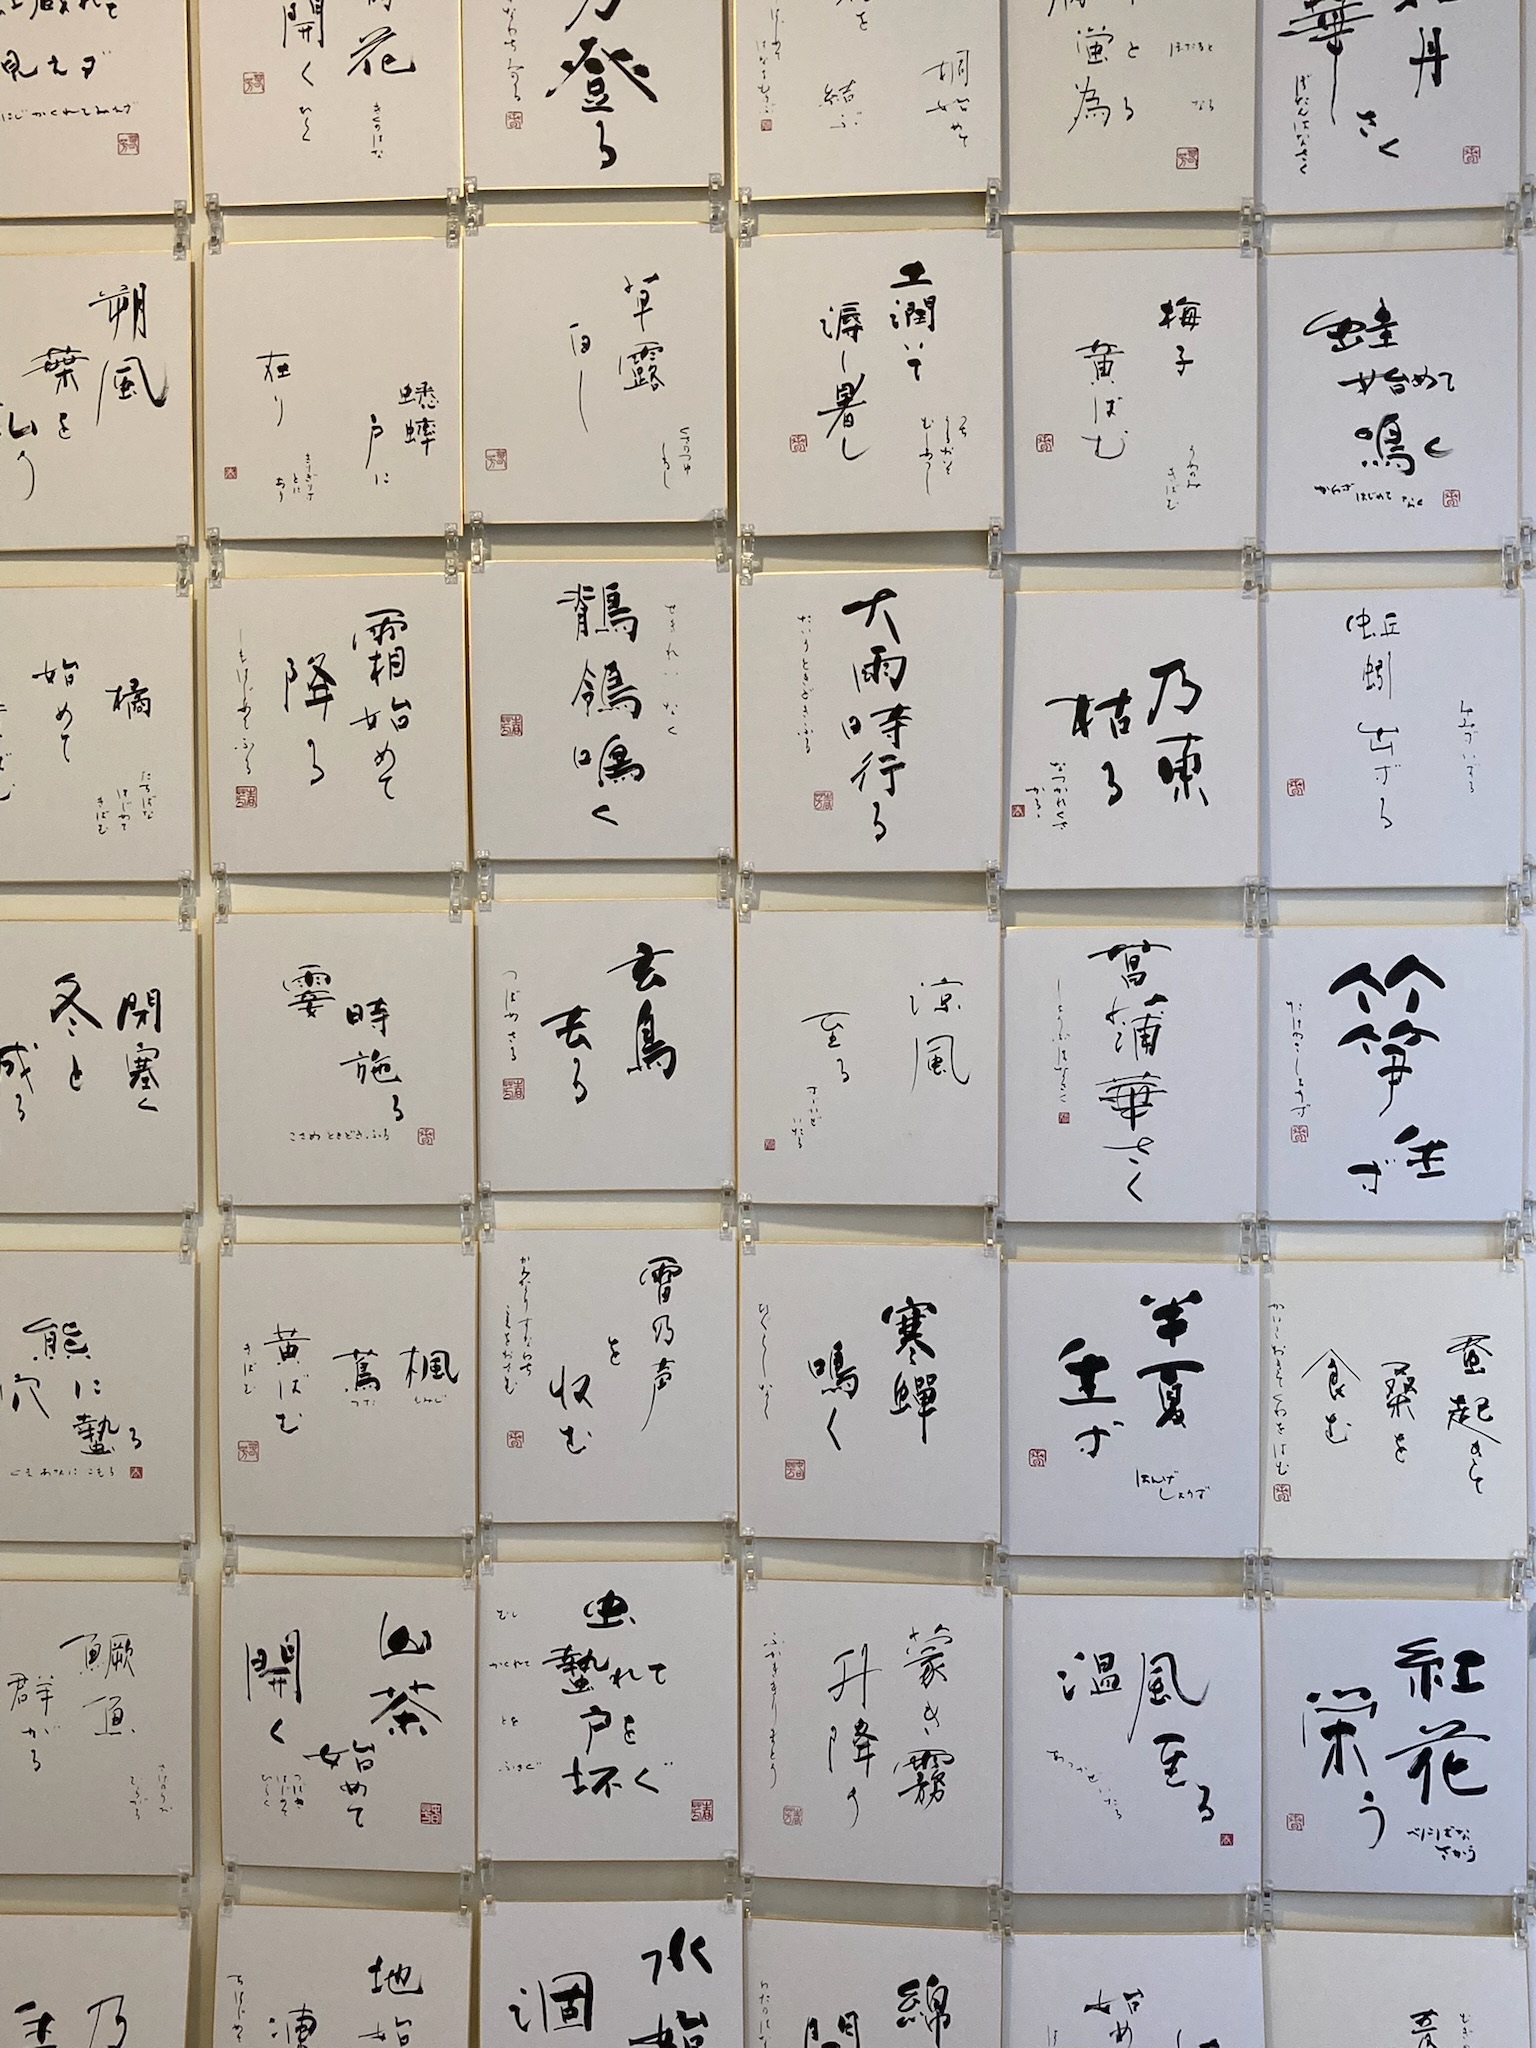 丹
華
さく
ぼたんはなさく
蛙
始めて
鳴く
かわず はじめて なく
蚯蚓出ずる
みみずいずる
竹笋生ず
たけのこしょうず
蚕起きて
桑を
食む
かいこおきてくわをはむ
紅花
栄う
べにばな
さかう
と
蛍為る
ほたると
なる
梅子
黄ばむ
うめのみ
きばむ
乃東
枯る
なつかれくさ
かるる
菖蒲華さく
しょうぶはなさく
半夏
生ず
はんげ
しょうず
風至る
温
あつかぜいたる
始め
桐始めて
を
結ぶ
はじめて
はなをむすぶ
土潤いて
溽し暑し
つち
うるおいて
むしあつし
大雨時行る
たいうときどきふる
涼風
至る
すずかぜ
いたる
寒蝉
鳴く
ひぐらしなく
蒙き霧
升降う
ふかききりまとう
綿
開
わたのはな
乃
登る
すなわちみのる
草露
白し
くさのつゆ
しろし
鶺鴒鳴く
せきれいなく
玄鳥
去る
つばめさる
雷乃声
を
収む
かみなりすなわち
こえをおさむ
虫
蟄れて
戸を
坏ぐ
むし
かくれて
とを
ふさぐ
水始
涸
花
開く
きくのはな
ひらく
蟋蟀
戸に
在り
きりぎりす
とに
あり
霜始めて
降る
しもはじめてふる
霎
時
施る
こさめ ときどき ふる
楓
蔦
黄ばむ
もみじ
つた
きばむ
山茶
始めて
開く
つばき
はじめて
ひらく
地始
凍
ちはじめて
見えず
にじかくれてみえず
朔風
葉を
払う
橘
始めて
たちばな
はじめて
きばむ
閉塞く
冬と
成る
熊に
穴
蟄る
くまあなにこもる
鱖魚
群がる
さけのうお
むらがる
乃
生